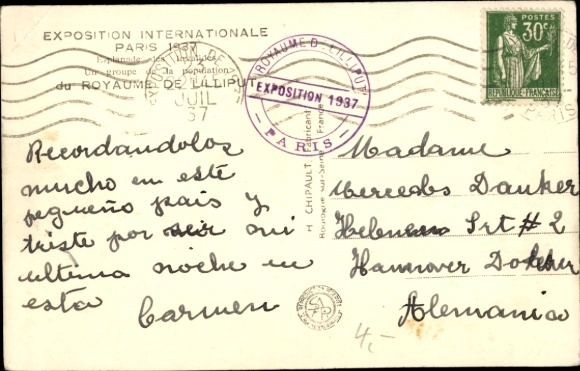 EXPOSITION INTERNATIONALE
PARIS 1937
Esplanade des Invalides
Un groupe de la population
du ROYAUME DE LILLIPUT
JUIL
37
ROYAUME DE LILLIPUT
EXPOSITION 1937
PARIS
POSTES
30c
REPUBLIQUE FRANÇAISE
PARIS
H CHIPAULT, Fabricant
Boulogne-sur-Seine, France
Recordandolos
mucho en este
pequeño pais y
triste por ser mi
ultima noche en
esta
Carmen
Madame
Mercedes Danker
Str # 2
Hannover
Alemania
4,-